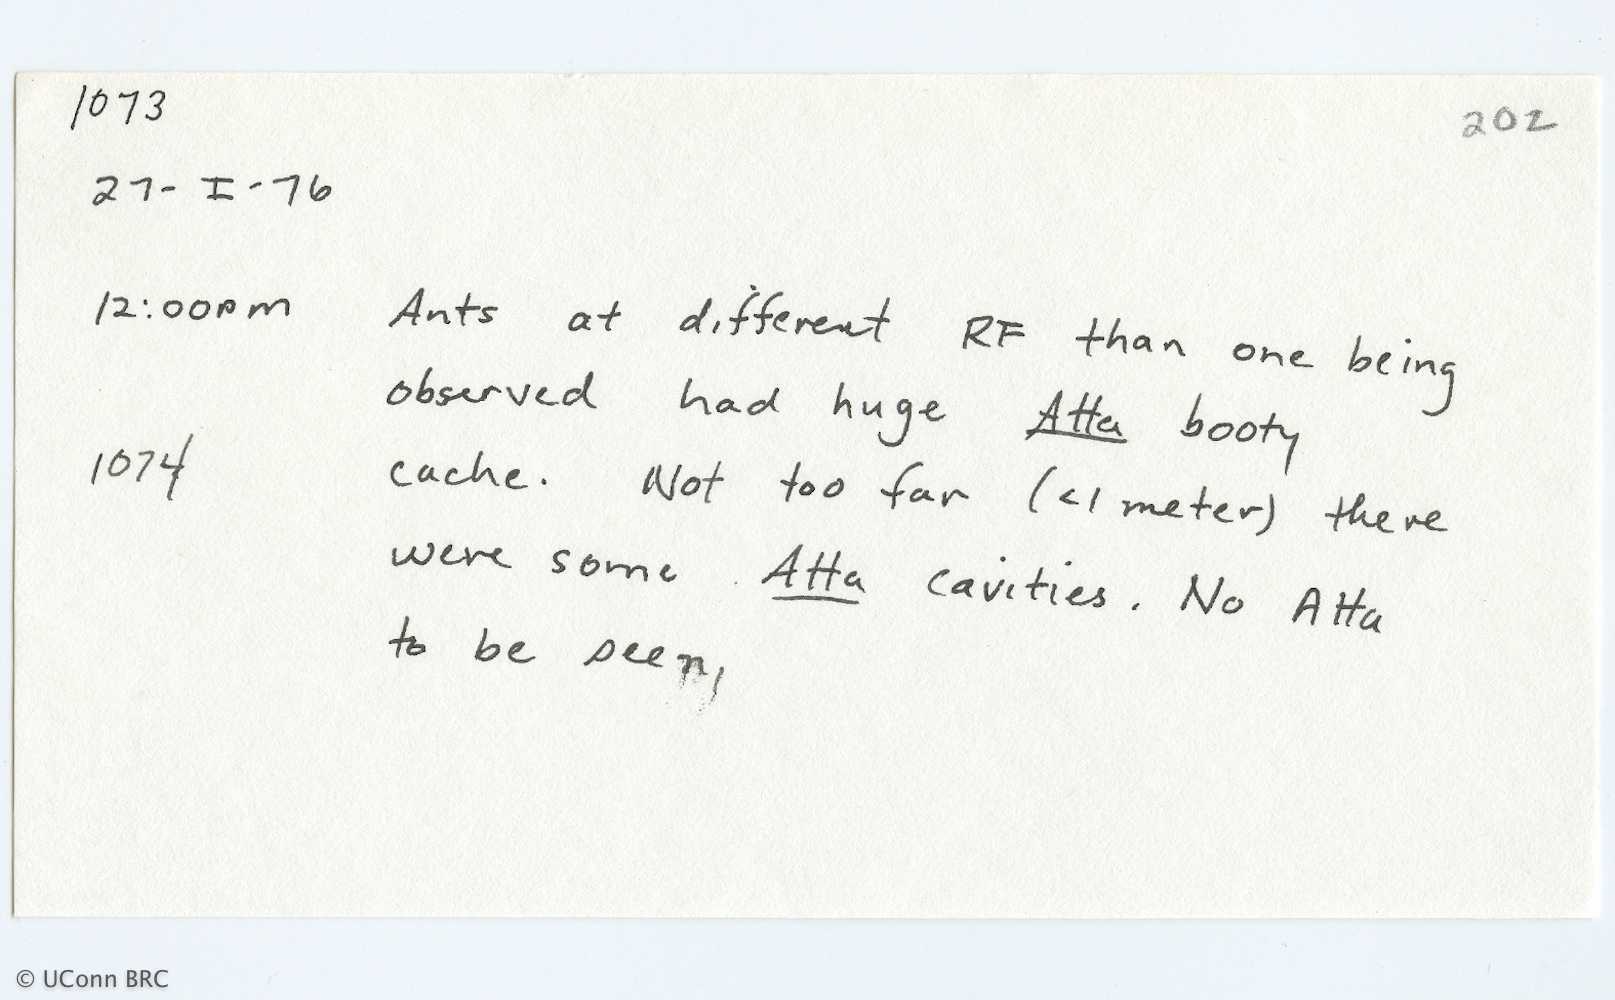 1073
202
27-I-76
12:00pm Ants at different RF than one being
observed had huge Atta booty
1074 cache. Not too far (<1 meter) there
were some Atta cavities. No Atta
to be seen,
© UConn BRC